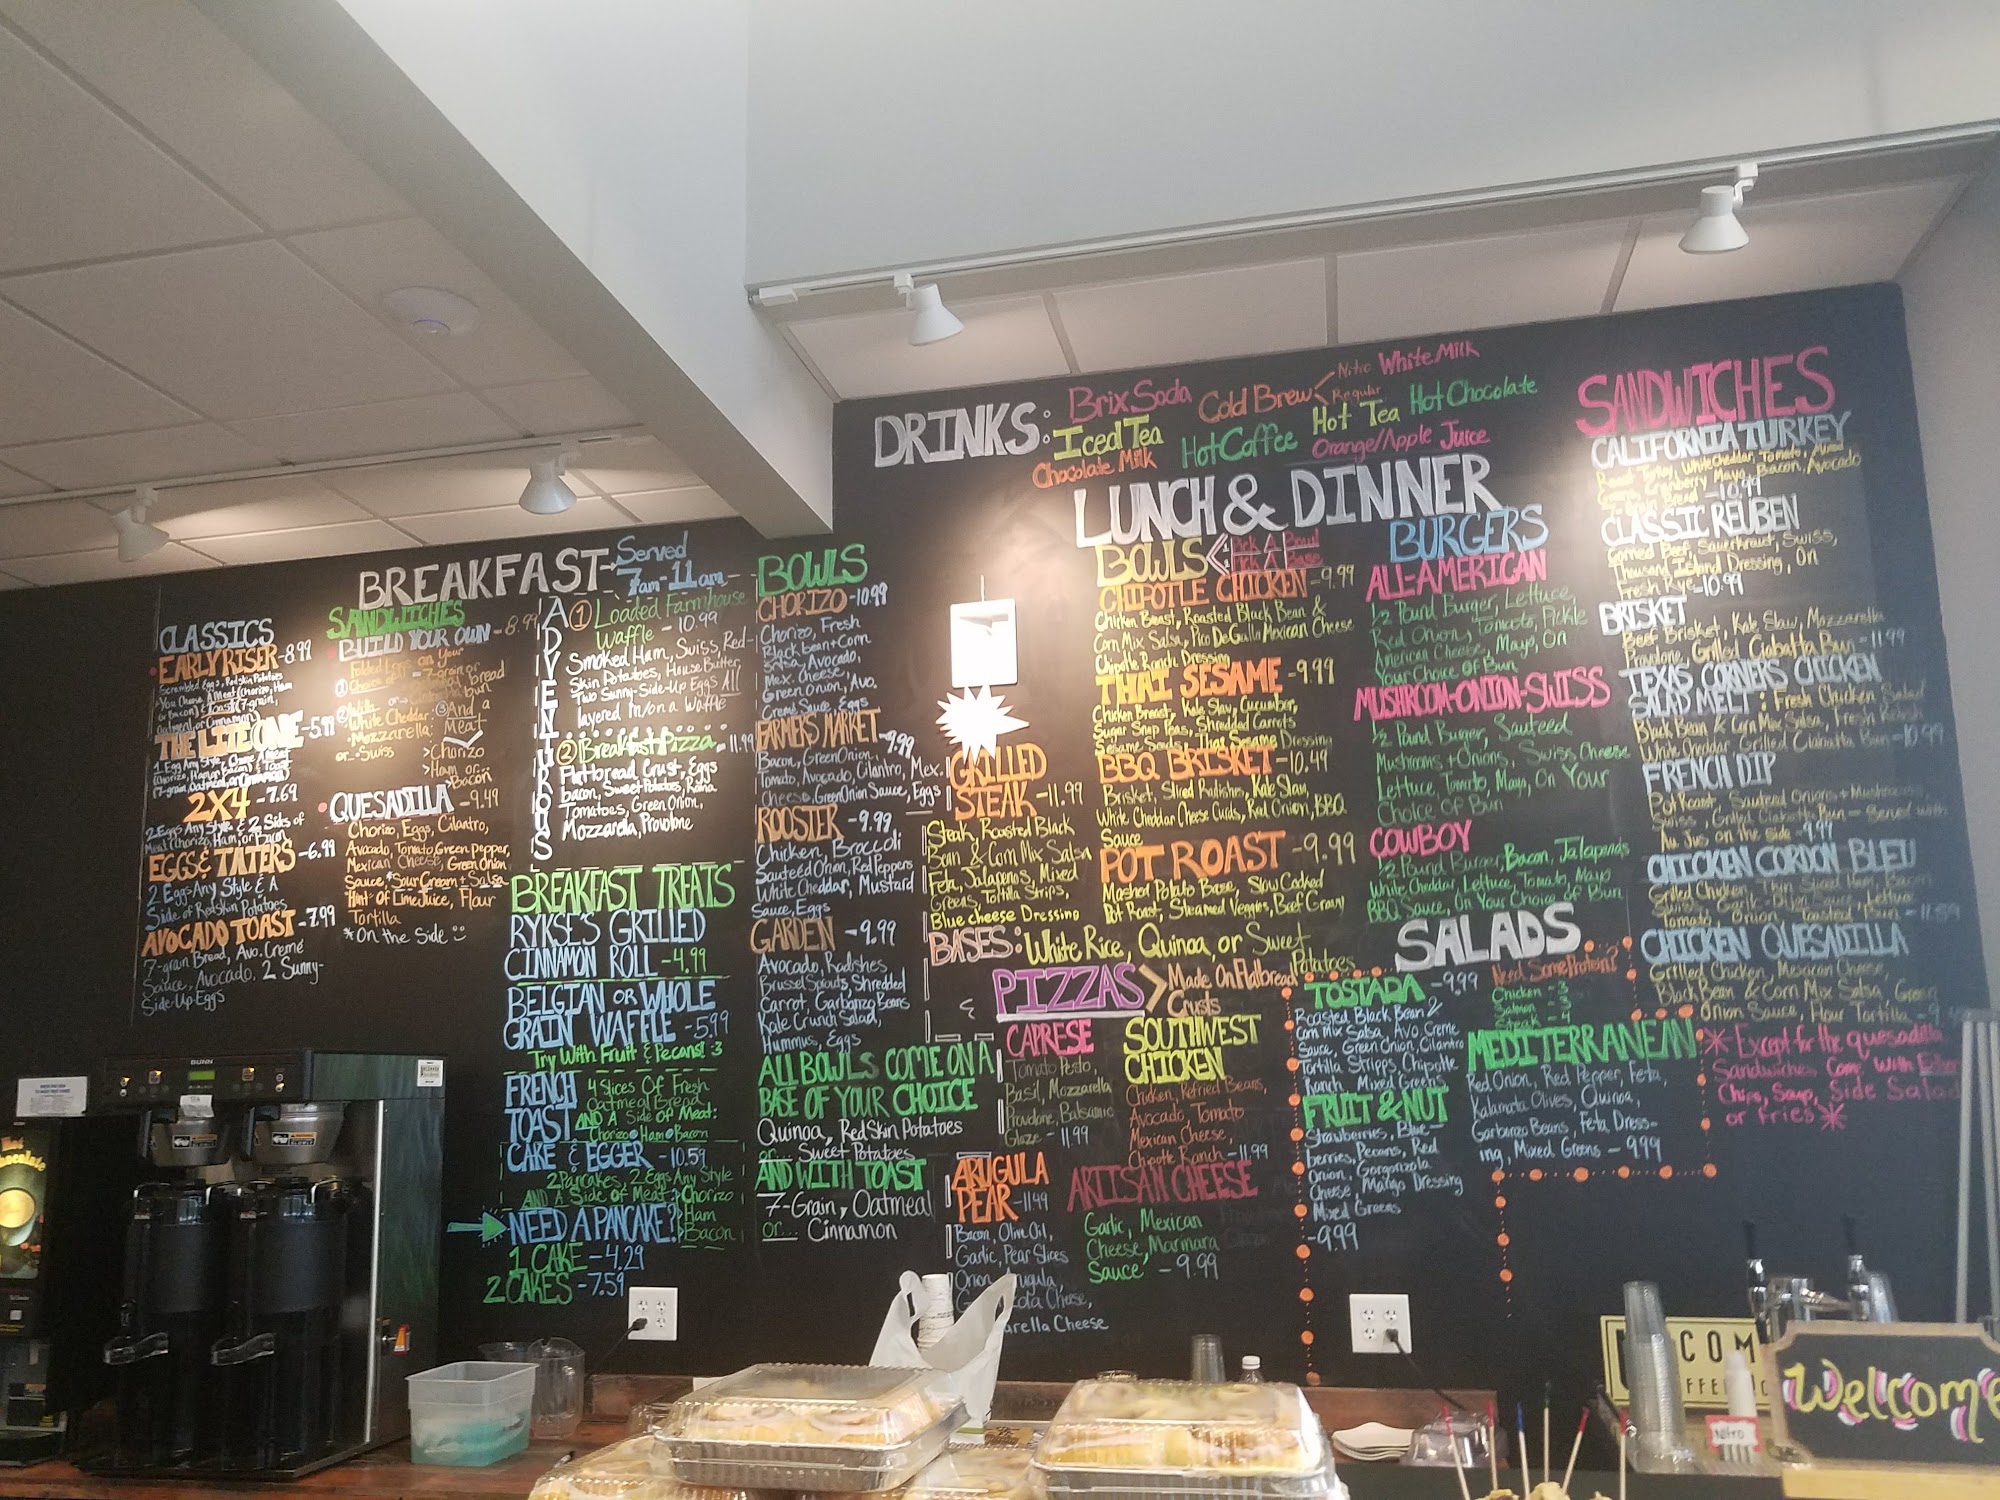 DRINKS:
Brix Soda
Cold Brew
Nitro
Regular
White Milk
Iced Tea
Hot Coffee
Hot Tea
Hot Chocolate
Chocolate Milk
Orange/Apple Juice
BREAKFAST
Served
7am-11am
CLASSICS
EARLY RISER-8.99
Scrambled Eggs, Redskin Potatoes
THE LITE ONE-5.99
1 Egg Any Style, Choice A Meat
2X4 -7.69
2 Eggs Any Style & 2 Sides of
Meat (Chorizo, Ham, or Bacon)
EGGS & TATERS-6.99
2 Eggs Any Style & A
Side of Redskin Potatoes
AVOCADO TOAST-7.99
7-grain Bread, Avo. Cremé
Sauce, Avocado, 2 Sunny-
Side-Up Eggs
SANDWICHES
BUILD YOUR OWN -8.99
Folded Eggs on Your
① Choice of: -7-grain or
White Cheddar:
③And a
Mozzarella: or
Meat
or...Swiss
>Chorizo
>Ham or...
>Bacon
QUESADILLA -9.49
Chorizo, Eggs, Cilantro,
Avocado, Tomato, Green pepper,
Mexican Cheese, Green Onion
Sauce, *Sour Cream + Salsa
Hint of Lime Juice, Flour
Tortilla
*On the Side
ADVENTUROUS
① Loaded Farmhouse
Waffle -10.99
Smoked Ham, Swiss, Red-
Skin Potatoes, House Butter,
Two Sunny-Side-Up Eggs All
layered in/on a Waffle
② Breakfast Pizza -11.99
Flatbread Crust, Eggs
bacon, Sweet Potatoes, Roma
Tomatoes, Green Onion,
Mozzarella, Provolone
BREAKFAST TREATS
RYKSE'S GRILLED
CINNAMON ROLL -4.99
BELGIAN OR WHOLE
GRAIN WAFFLE -5.99
Try With Fruit & Pecans! 3
FRENCH
TOAST
4 Slices Of Fresh
Oatmeal Bread,
AND A Side of Meat:
Chorizo Ham Bacon
CAKE & EGGER -10.59
2 Pancakes, 2 Eggs Any Style
AND A Side of Meat:
Chorizo
Ham
Bacon
NEED A PANCAKE?
1 CAKE -4.29
2 CAKES -7.59
BOWLS
CHORIZO -10.99
Chorizo, Fresh
Black bean + Corn
Salsa, Avocado,
Mex. Cheese,
Green Onion, Avo.
Cremé Sauce, Eggs
FARMERS MARKET -9.99
Bacon, Green Onion,
Tomato, Avocado, Cilantro, Mex.
Cheese, Green Onion Sauce, Eggs
ROOSTER -9.99
Chicken, Broccoli
Sauteed Onion, Red Peppers
White Cheddar, Mustard
Sauce, Eggs
GARDEN -9.99
Avocado, Radishes,
Brussel Sprouts, Shredded
Carrot, Garbanzo Beans
Kale Crunch Salad,
Hummus, Eggs
ALL BOWLS COME ON A
BASE OF YOUR CHOICE
Quinoa, Red Skin Potatoes
or... Sweet Potatoes
AND WITH TOAST
7-Grain, Oatmeal
or... Cinnamon
LUNCH & DINNER
BOWLS
Pick A Bowl
Pick A Base
CHIPOTLE CHICKEN -9.99
Chicken Breast, Roasted Black Bean &
Corn Mix Salsa, Pico De Gallo, Mexican Cheese
Chipotle Ranch Dressing
THAI SESAME -9.99
Chicken Breast, Kale Slaw, Cucumber,
Sugar Snap Peas, Shredded Carrots
Sesame Seeds, Thai Sesame Dressing
BBQ BRISKET -10.49
Brisket, Sliced Radishes, Kale Slaw,
White Cheddar Cheese Curds, Red Onion, BBQ
Sauce
POT ROAST -9.99
Mashed Potato Base, Slow Cooked
Pot Roast, Steamed Veggies, Beef Gravy
GRILLED
STEAK -11.99
Steak, Roasted Black
Bean & Corn Mix Salsa
Feta, Jalapenos, Mixed
Greens, Tortilla Strips,
Blue cheese Dressing
BASES: White Rice, Quinoa, or Sweet
Potatoes
PIZZAS
Made On Flatbread
Crusts
CAPRESE
Tomato Pesto,
Basil, Mozzarella
Provolone, Balsamic
Glaze -11.99
SOUTHWEST
CHICKEN
Chicken, Refried Beans,
Avocado, Tomato
Mexican Cheese,
Chipotle Ranch -11.99
ARUGULA
PEAR -11.99
Bacon, Olive Oil,
Garlic, Pear Slices
Onion, Arugula,
Cheese,
Cheese
ARTISAN CHEESE
Garlic, Mexican
Cheese, Marinara
Sauce -9.99
BURGERS
ALL-AMERICAN
1/2 Pound Burger, Lettuce,
Red Onion, Tomato, Pickle
American Cheese, Mayo, On
Your Choice of Bun
MUSHROOM-ONION-SWISS
1/2 Pound Burger, Sauteed
Mushrooms + Onions, Swiss Cheese
Lettuce, Tomato, Mayo, On Your
Choice Of Bun
COWBOY
1/2 Pound Burger, Bacon, Jalapenos
White Cheddar, Lettuce, Tomato, Mayo
BBQ Sauce, On Your Choice of Bun
SALADS
Need Some Protein?
Chicken -3
Salmon
Steak -4
TOSTADA -9.99
Roasted Black Bean &
Corn Mix Salsa, Avo. Creme
Sauce, Green Onion, Cilantro
Tortilla Stripps, Chipotle
Ranch, Mixed Greens
FRUIT & NUT
Strawberries, Blue-
berries, Pecans, Red
Onion, Gorgonzola
Cheese, Mango Dressing
Mixed Greens
-9.99
MEDITERRANEAN
Red Onion, Red Pepper, Feta,
Kalamata Olives, Quinoa,
Garbanzo Beans, Feta, Dress-
ing, Mixed Greens -9.99
SANDWICHES
CALIFORNIA TURKEY
Roast Turkey, White Cheddar, Tomato, Mixed
Greens, Cranberry Mayo, Bacon, Avocado
-10.99
CLASSIC REUBEN
Corned Beef, Sauerkraut, Swiss,
Thousand Island Dressing, On
Fresh Rye -10.99
BRISKET
Beef Brisket, Kale Slaw, Mozzarella
Provolone, Grilled Ciabatta Bun -11.99
TEXAS CORNERS CHICKEN
SALAD MELT: Fresh Chicken Salad
Black Bean & Corn Mix Salsa, Fresh
White Cheddar, Grilled Ciabatta Bun -10.99
FRENCH DIP
Pot Roast, Sauteed Onions + Mushrooms,
Swiss, Grilled Ciabatta Bun - Served with
Au Jus on the side -9.99
CHICKEN CORDON BLEU
Grilled Chicken, Thin Sliced Ham, Bacon
Swiss, Garlic-Dijon Sauce, Lettuce
Tomato, Onion, Toasted Bun -11.59
CHICKEN QUESADILLA
Grilled Chicken, Mexican Cheese,
Black Bean & Corn Mix Salsa, Green
Onion, Sauce, Flour Tortilla
* Except for the quesadilla
Sandwiches Come With Either
Chips, Soup, Side Salad
or Fries *
BUNN
TEA
Hot
Chocolate
Nitro
Welcome